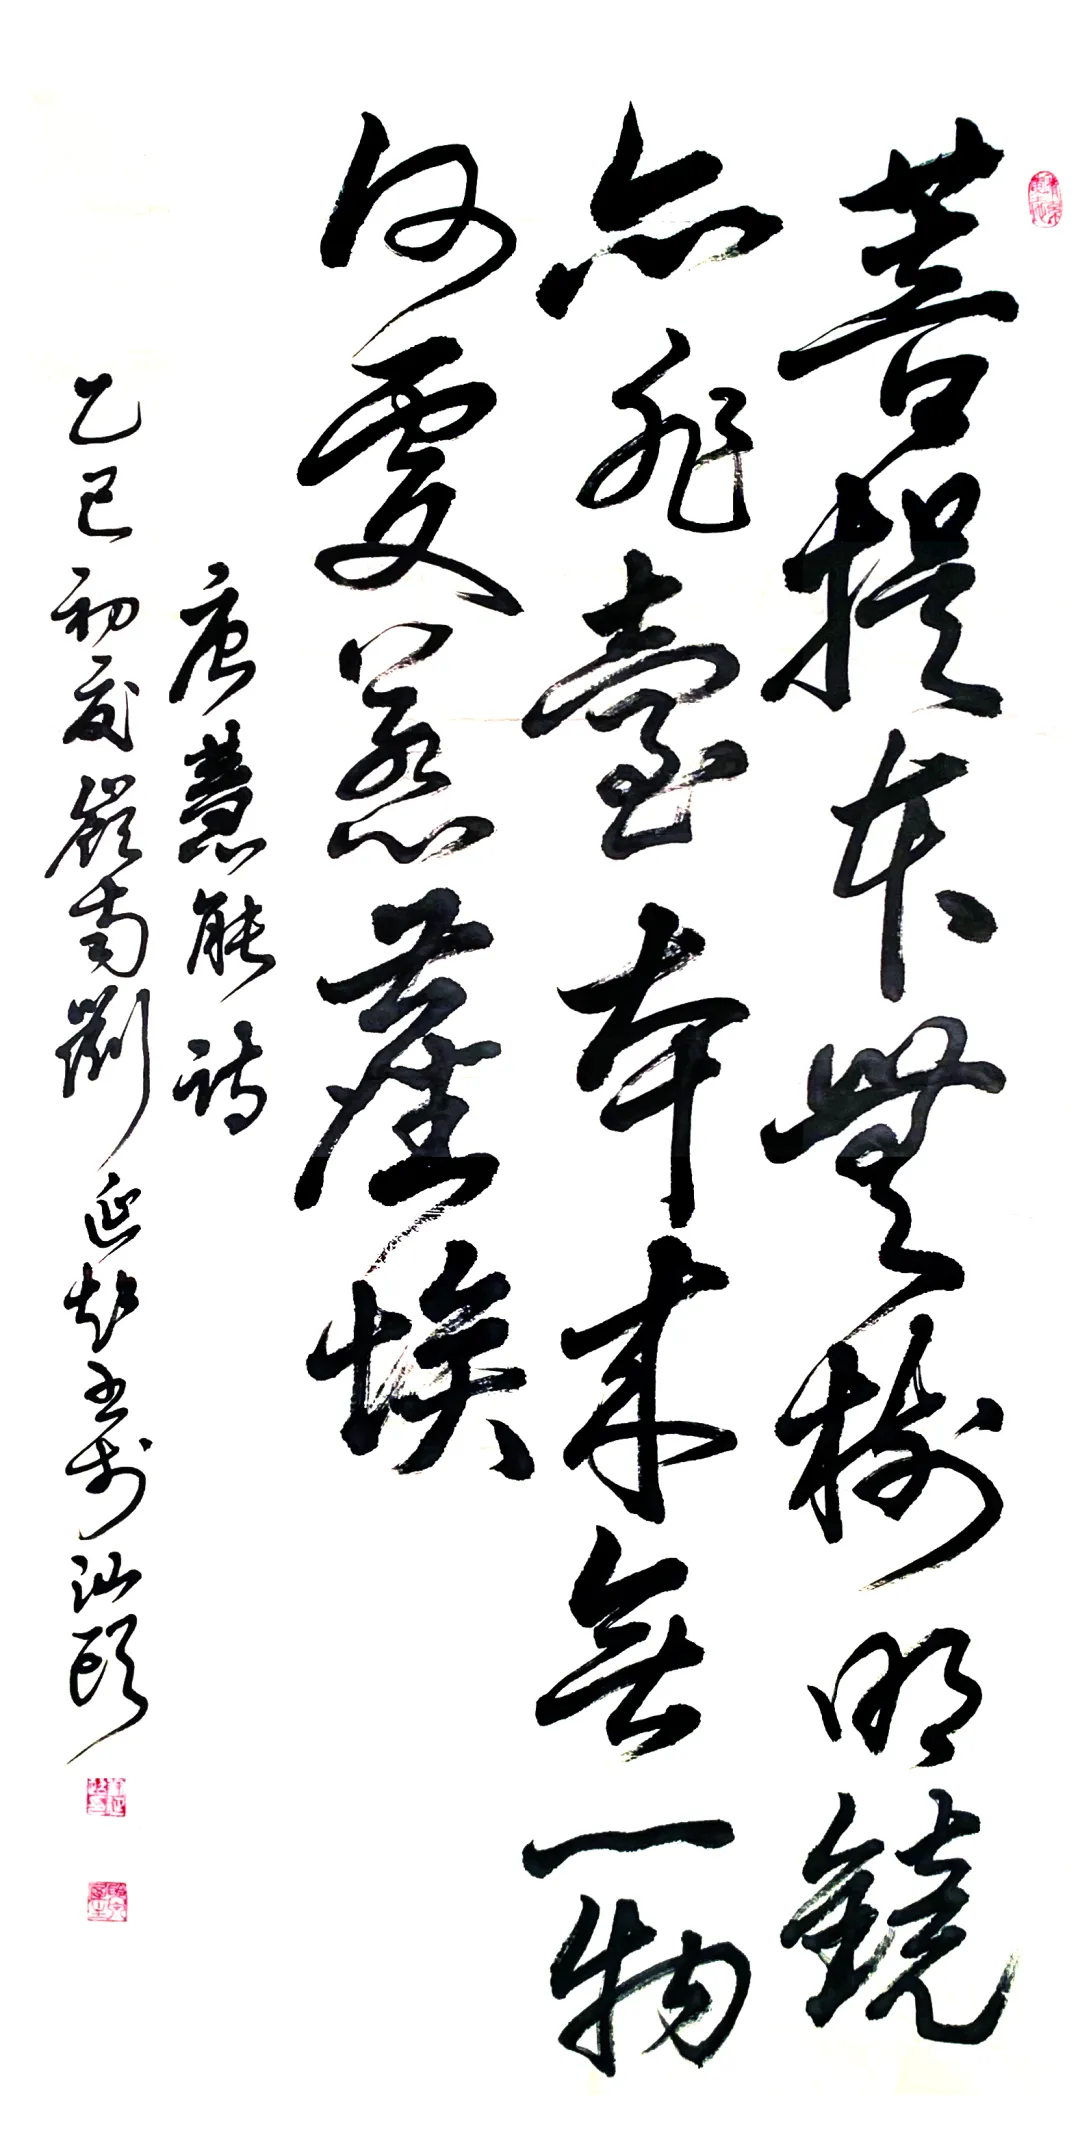 菩提本無樹明鏡
亦非臺本來無一物
何處惹塵埃
唐慧能詩
乙巳初夏嶺南劉延超書於汕頭